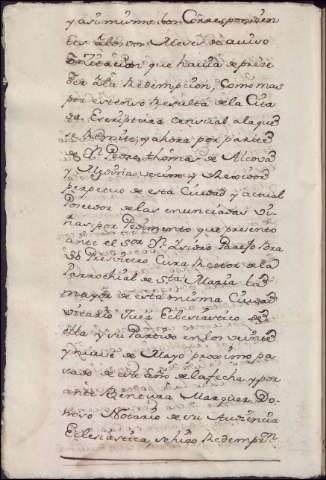 y asimismo con Correspondien
tes a los dos Meses de aviso
que havia de prece
der a la Redempcion, como mas
por extenso Resulta de la Cita
da Escriptura censual a la que
se Remite; y ahora, por parte
de Dn. Pedro thomas de Alcova
y vecino y Rexidor
perpetuo de esta Ciudad y actual
Poseedor de las enunciadas vi
ñas, por Pedimento que presento
ante el Sor. Dn. Isidro
do Presvitero Cura Rector de la
Parrochial de Sta. Maria la
mayor de esta misma Ciudad
Vicario Juez Eclesiastico de
ella y su Partido en los veinte
y nueve de Mayo proximo pa
sado de este año de la fecha, y por
ante Benetura Marquez Do
noso Notario de su Audiencia
Eclesiastica, se hizo Redempn.